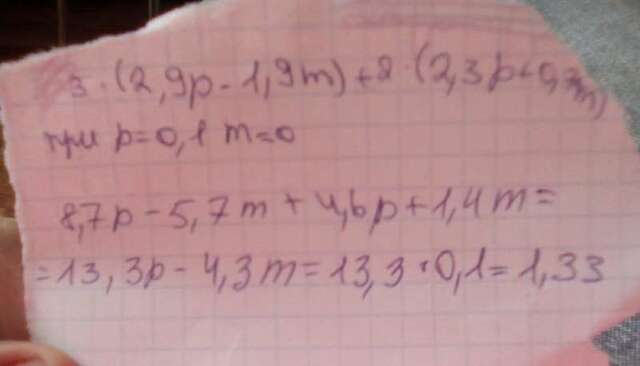 3·(2,9p-1,9m)+2·(2,3p+0,7m)
при p=0,1 m=0
8,7p-5,7m+4,6p+1,4m=
=13,3p-4,3m=13,3·0,1=1,33